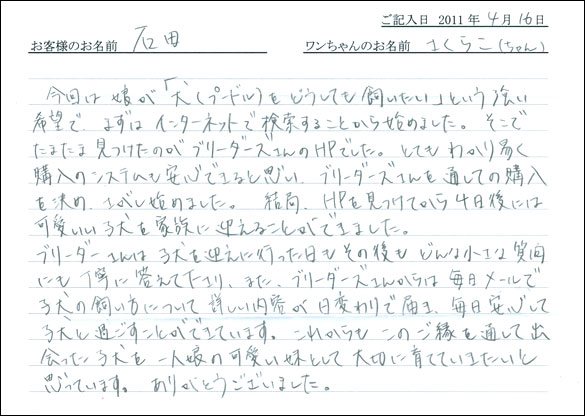 ご記入日 2011年4月16日
お客様のお名前 石田 ワンちゃんのお名前 さくらこ(ちゃん)
今回は娘が「犬(プードル)をどうしても飼いたい」という強い
希望で、まずはインターネットで検索することから始めました。そこで
たまたま見つけたのがブリーダーズさんのHPでした。とてもわかり易く
購入のシステムも安心できると思い、ブリーダーズさんを通しての購入
を決め、さがし始めました。結局、HPを見つけてから4日後には
可愛いい子犬を家族に迎えることができました。
ブリーダーさんは子犬を迎えに行った日もその後もどんな小さな質問
にも丁寧に答えて下さり、また、ブリーダーズさんからは毎日メールで
子犬の飼い方について詳しい内容が日変わりで届き、毎日安心して
子犬と過ごすことができています。これからもこのご縁を通して出
会った子犬を一人娘の可愛い妹として大切に育てていきたいと
思っています。ありがとうございました。